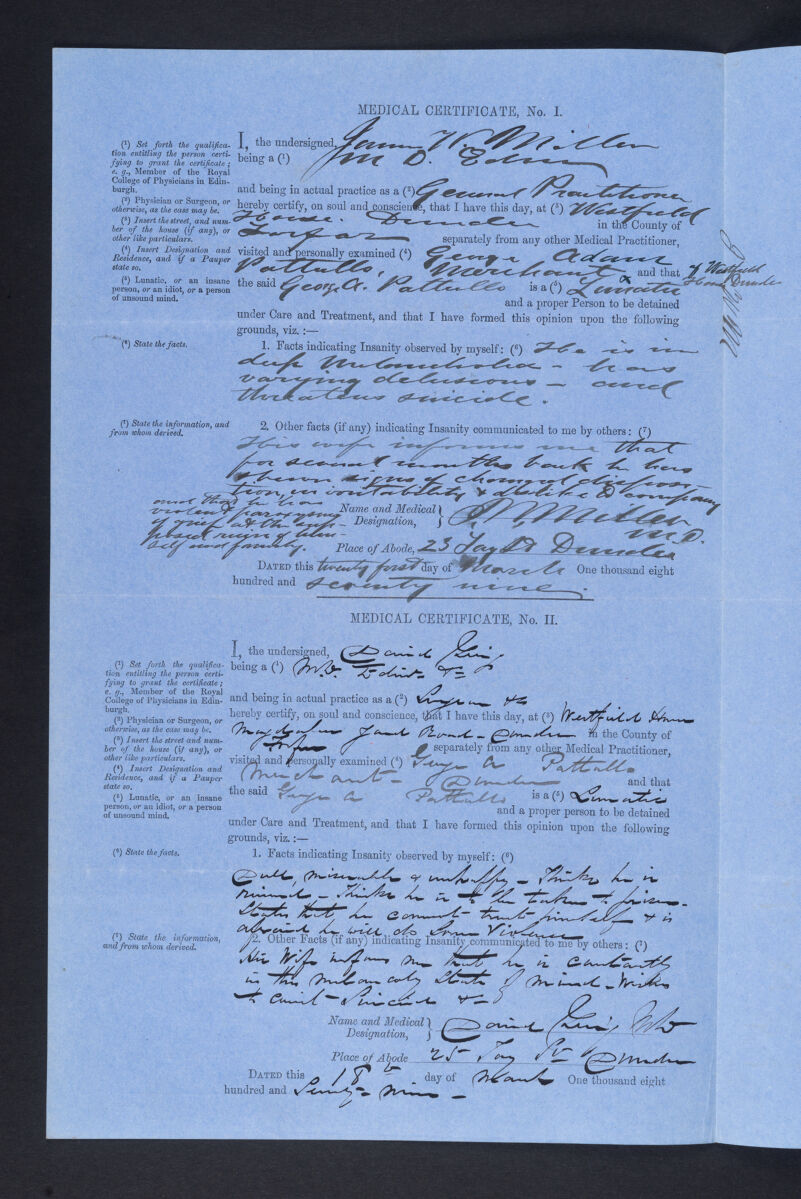 MEDICAL CERTIFICATE, No. I.
(¹) Set forth the qualifica-
tion entitling the person certi-
fying to grant the certificate;
e. g., Member of the Royal
College of Physicians in Edin-
burgh.
(²) Physician or Surgeon, or
otherwise, as the case may be.
(³) Insert the street, and num-
ber of the house (if any), or
other like particulars.
(⁴) Insert Designation and
Residence, and if a Pauper
state so.
(⁵) Lunatic, or an insane
person, or an idiot, or a person
of unsound mind.
I, the undersigned, James W. Miller
being a (¹) M D. Edin
and being in actual practice as a (²) General Practitioner
hereby certify, on soul and conscience, that I have this day, at (³) Westfield
House. Dundee in the County of
Forfar separately from any other Medical Practitioner,
visited and personally examined (⁴) George Adam
Pattullo, Merchant and that
of Westfield
House Dundee
the said George A. Pattullo is a (⁵) Lunatic
and a proper Person to be detained
under Care and Treatment, and that I have formed this opinion upon the following
grounds, viz. :—
(⁶) State the facts.
1. Facts indicating Insanity observed by myself: (⁶) He is in
deep Melancholia - has
varying delusions - and
threatens suicide.
(⁷) State the information, and
from whom derived.
2. Other facts (if any) indicating Insanity communicated to me by others: (⁷)
His wife informs me that
for several months back he has
shewn signs of changed disposi-
tion, in irritability & dislike to company
and that he has
violent paroxysms
of grief at the sup-
posed ruin of him-
self and family.
Name and Medical
Designation, J W Miller
M.D.
Place of Abode, 23 Tay St Dundee
DATED this twenty first day of March One thousand eight
hundred and seventy nine.
MEDICAL CERTIFICATE, No. II.
(¹) Set forth the qualifica-
tion entitling the person certi-
fying to grant the certificate;
e. g., Member of the Royal
College of Physicians in Edin-
burgh.
(²) Physician or Surgeon, or
otherwise, as the case may be.
(³) Insert the street and num-
ber of the house (if any), or
other like particulars.
(⁴) Insert Designation and
Residence, and if a Pauper
state so.
(⁵) Lunatic, or an insane
person, or an idiot, or a person
of unsound mind.
I, the undersigned, David Greig
being a (¹) M.D. Edin &c
and being in actual practice as a (²) Surgeon &c
hereby certify, on soul and conscience, that I have this day, at (³) Westfield House
Magdalen Yard Road - Dundee in the County of
Forfar separately from any other Medical Practitioner,
visited and personally examined (⁴) George A Pattullo
Merchant - Dundee and that
the said George A Pattullo is a (⁵) Lunatic
and a proper person to be detained
under Care and Treatment, and that I have formed this opinion upon the following
grounds, viz. :—
(⁶) State the facts.
1. Facts indicating Insanity observed by myself: (⁶)
Dull, miserable & unhappy - Thinks he is
ruined - Thinks he is to be taken to prison -
States that he cannot trust himself & is
afraid he will do some Violence
(⁷) State the information,
and from whom derived.
2. Other Facts (if any) indicating Insanity communicated to me by others: (⁷)
His Wife informs me that he is constantly
in this melancholy State of mind - Wishes
to commit - Suicide &c
Name and Medical
Designation, David Greig MD
Place of Abode 25 Tay St Dundee
DATED this 18th day of March One thousand eight
hundred and Seventy - nine -